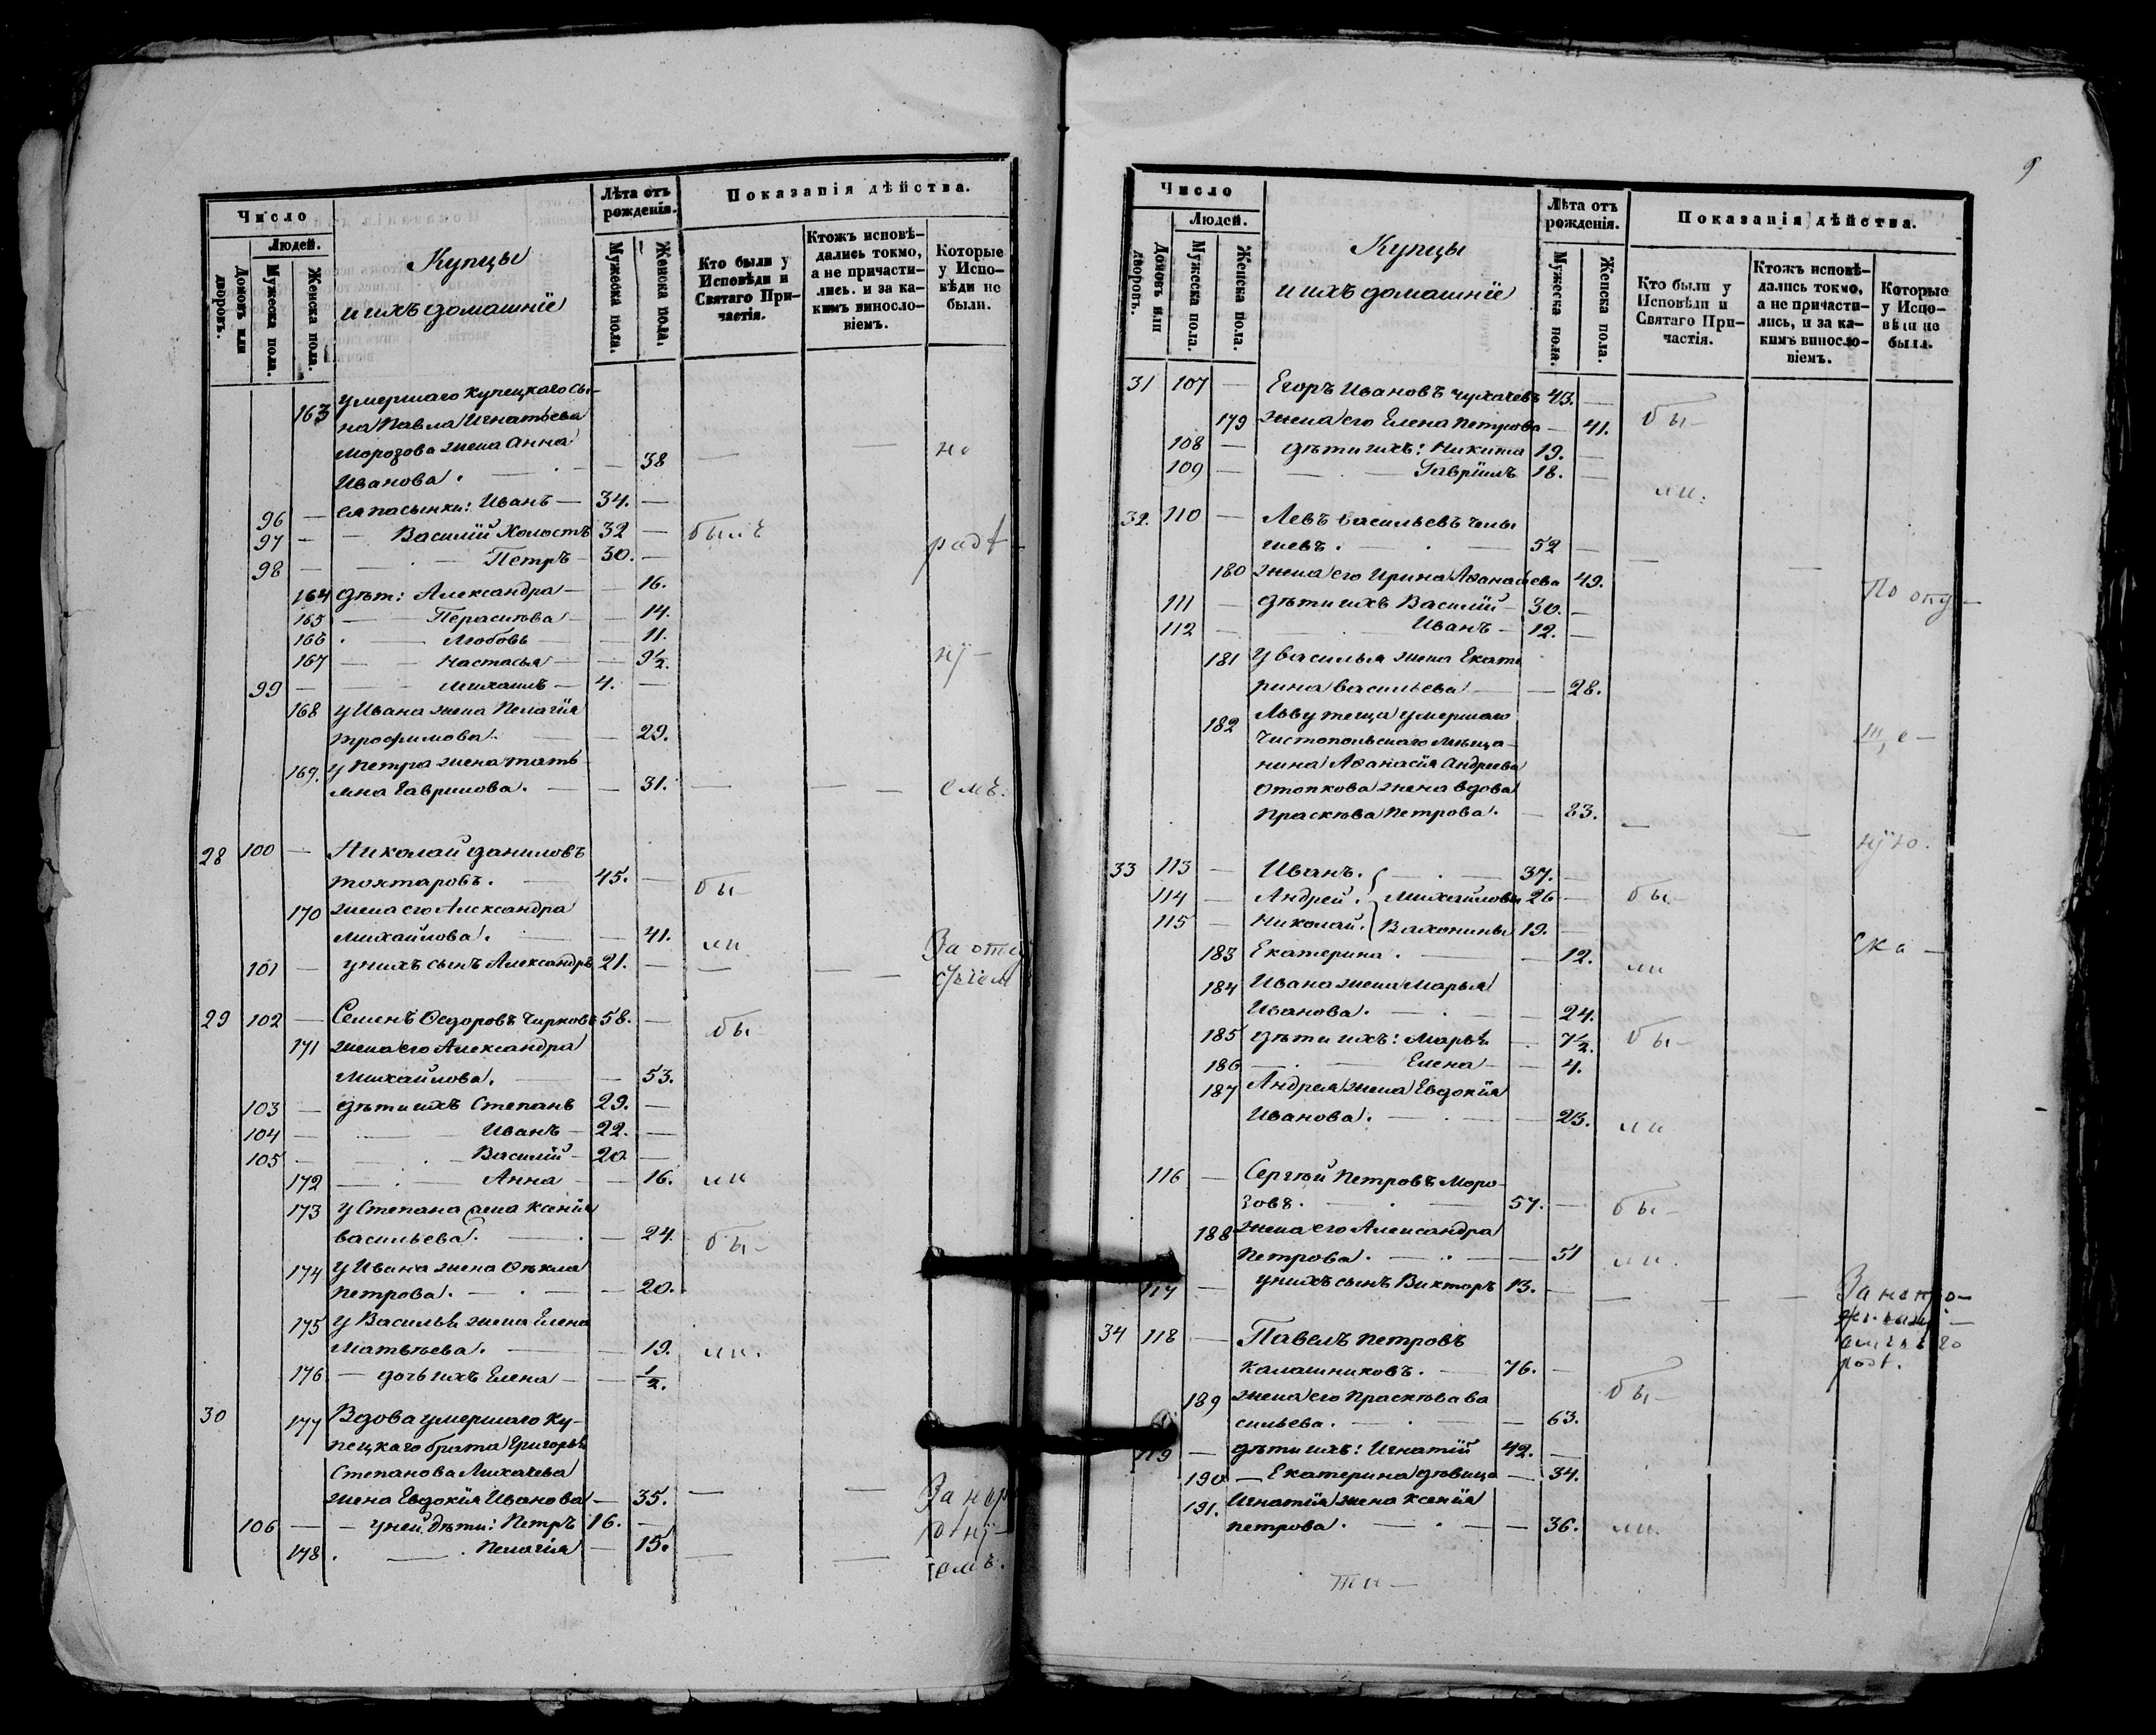 Число
Лѣта отъ рожденія.
Показанія дѣйства.
Людей.
Домовъ или дворовъ.
Мужеска пола.
Женска пола.
Купцы
и ихъ домашніе
Мужеска пола.
Женска пола.
Кто были у Исповѣди и Святаго При-частія.
Ктожъ исповѣ-дались токмо, а не причасти-лись. и за ка-кимъ виносло-віемъ.
Которые у Испо-вѣди не были.
163 умершаго купецкаго сы-
на Павла Игнатьева
Морозова жена Анна
Иванова. — 38
96 — ея пасынки: Иванъ — 34. —
97 — — Василій Холостъ 32 — былъ
98 — — Петръ — 30. —
164 дѣт: Александра — — 16.
165 — — Парасковья — 14.
166 — Любовь — 11.
167 — — Настасья — — 9½.
99 — — Михаилъ — 4. —
168 у Ивана жена Пелагія
Трофимова. — — 29.
169. у Петра жена Тать
яна Гаврилова. — — 31. — — —
28 100 — Николай Даниловъ
Тохтаровъ. — 45. — бы-
170 жена его Александра
Михайлова. — 41. ли
101 — у нихъ сынъ Александръ 21. — — — —
29 102 — Семенъ Ѳедоровъ Чирковъ 58. — бы
171 жена его Александра
Михайлова. — — 53.
103 — дѣти ихъ Степанъ 29. —
104 — — Иванъ — 22. —
105 — — Василій — 20 —
172 — — Анна — — 16. ли
173 у Степана жена Ксенія
Васильева. — — 24. бы-
174 у Ивана жена Ѳекла
Петрова. — — — 20.
175 у Василья жена Елена
Матвѣева. — — 19. ли.
176 — дочь ихъ Елена — — ½.
30 177 Вдова умершаго Ку-
пецкаго брата Григорья
Степанова Лихачева
жена Евдокія Иванова — 35. — —
106 — — у ней дѣти: Петръ 16. —
178 — Пелагія — 15. — —
9
Число
Лѣта отъ рожденія.
Показанія дѣйства.
Людей.
Домовъ или дворовъ.
Мужеска пола.
Женска пола.
Купцы
и ихъ домашніе
Мужеска пола.
Женска пола.
Кто были у Исповѣди и Святаго При-частія.
Ктожъ исповѣ-дались токмо, а не причасти-лись, и за ка-кимъ виносло-віемъ.
Которые у Испо-вѣди не были.
31 107 — Егоръ Ивановъ Чухачевъ 43. —
179 жена его Елена Петрова — 41. бы-
108 — дѣти ихъ: Никита 19. —
109 — — Гавріилъ 18. — ли.
32. 110 — Левъ Васильевъ
52 —
180 жена его Ирина Аѳанасьева 49. — —
111 — дѣти ихъ Василій — 30. — По опу-
112 — — Иванъ — 12. —
181 у Василья жена Екате
рина Васильева — — 28.
182 Льву теща умершаго
Чистопольскаго мѣща-
нина Аѳанасія Андреева
жена вдова
Прасковья Петрова. — 83. — —
33 113 — Иванъ. — 37. —
114 — Андрей. Михайловы 26 — бы-
115 — Николай. Вахонины 19. —
183 Екатерина. — — 12. ли
184 Ивана жена Марья
Иванова. — — 24.
185 дѣти ихъ: Марья — 7½. бы-
186 — Елена — — 4.
187 Андрея жена Евдокія
Иванова. — — 23. ли
116 — Сергѣй Петровъ Моро-
зовъ. — 57. — бы-
188 жена его Александра
Петрова. — — 51 ли.
117 — у нихъ сынъ Викторъ 13. — — — —
34 118 — Павелъ Петровъ
Калашниковъ. — 76. —
189 жена его Прасковья Ва
сильева. — — 63. бы-
119 — дѣти ихъ: Игнатій 42. —
190 — Екатерина дѣвица — 34.
191. Игнатія жена Ксенія
Петрова. — — 36. ли.